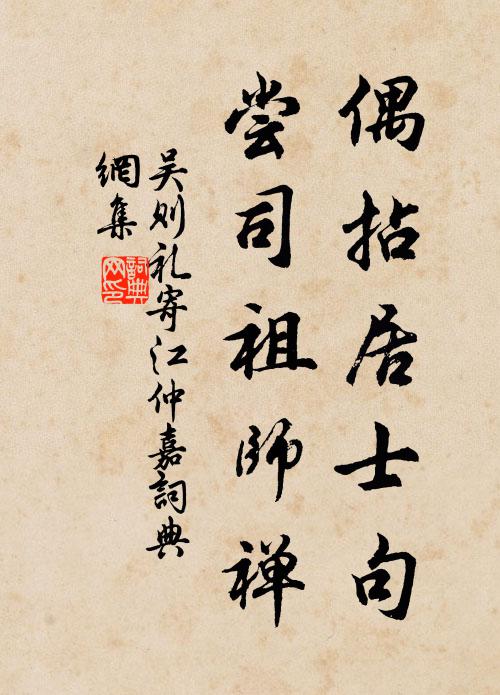 偶拈居士句
尝司祖师禅
吴则礼寄江仲嘉詞典
網集
詞典網印